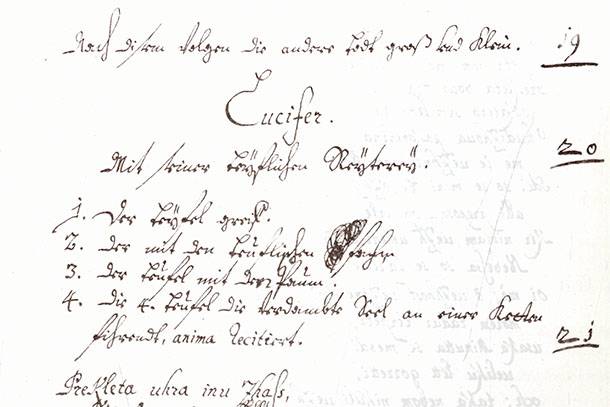 Nach disem Volgen die andere todt groß und Klein. 19
Lucifer.
Mit seiner teÿflichen Reÿtereÿ. 20
1. Der teÿfel greiß.
2. der mit den teuflischen
3. der teufel mit den Paum.
4. die 4. teufel die verdambte Seel an einer Ketten
fihrendt, anima Recitiert. 21
Prekleta uhra inu zhass,